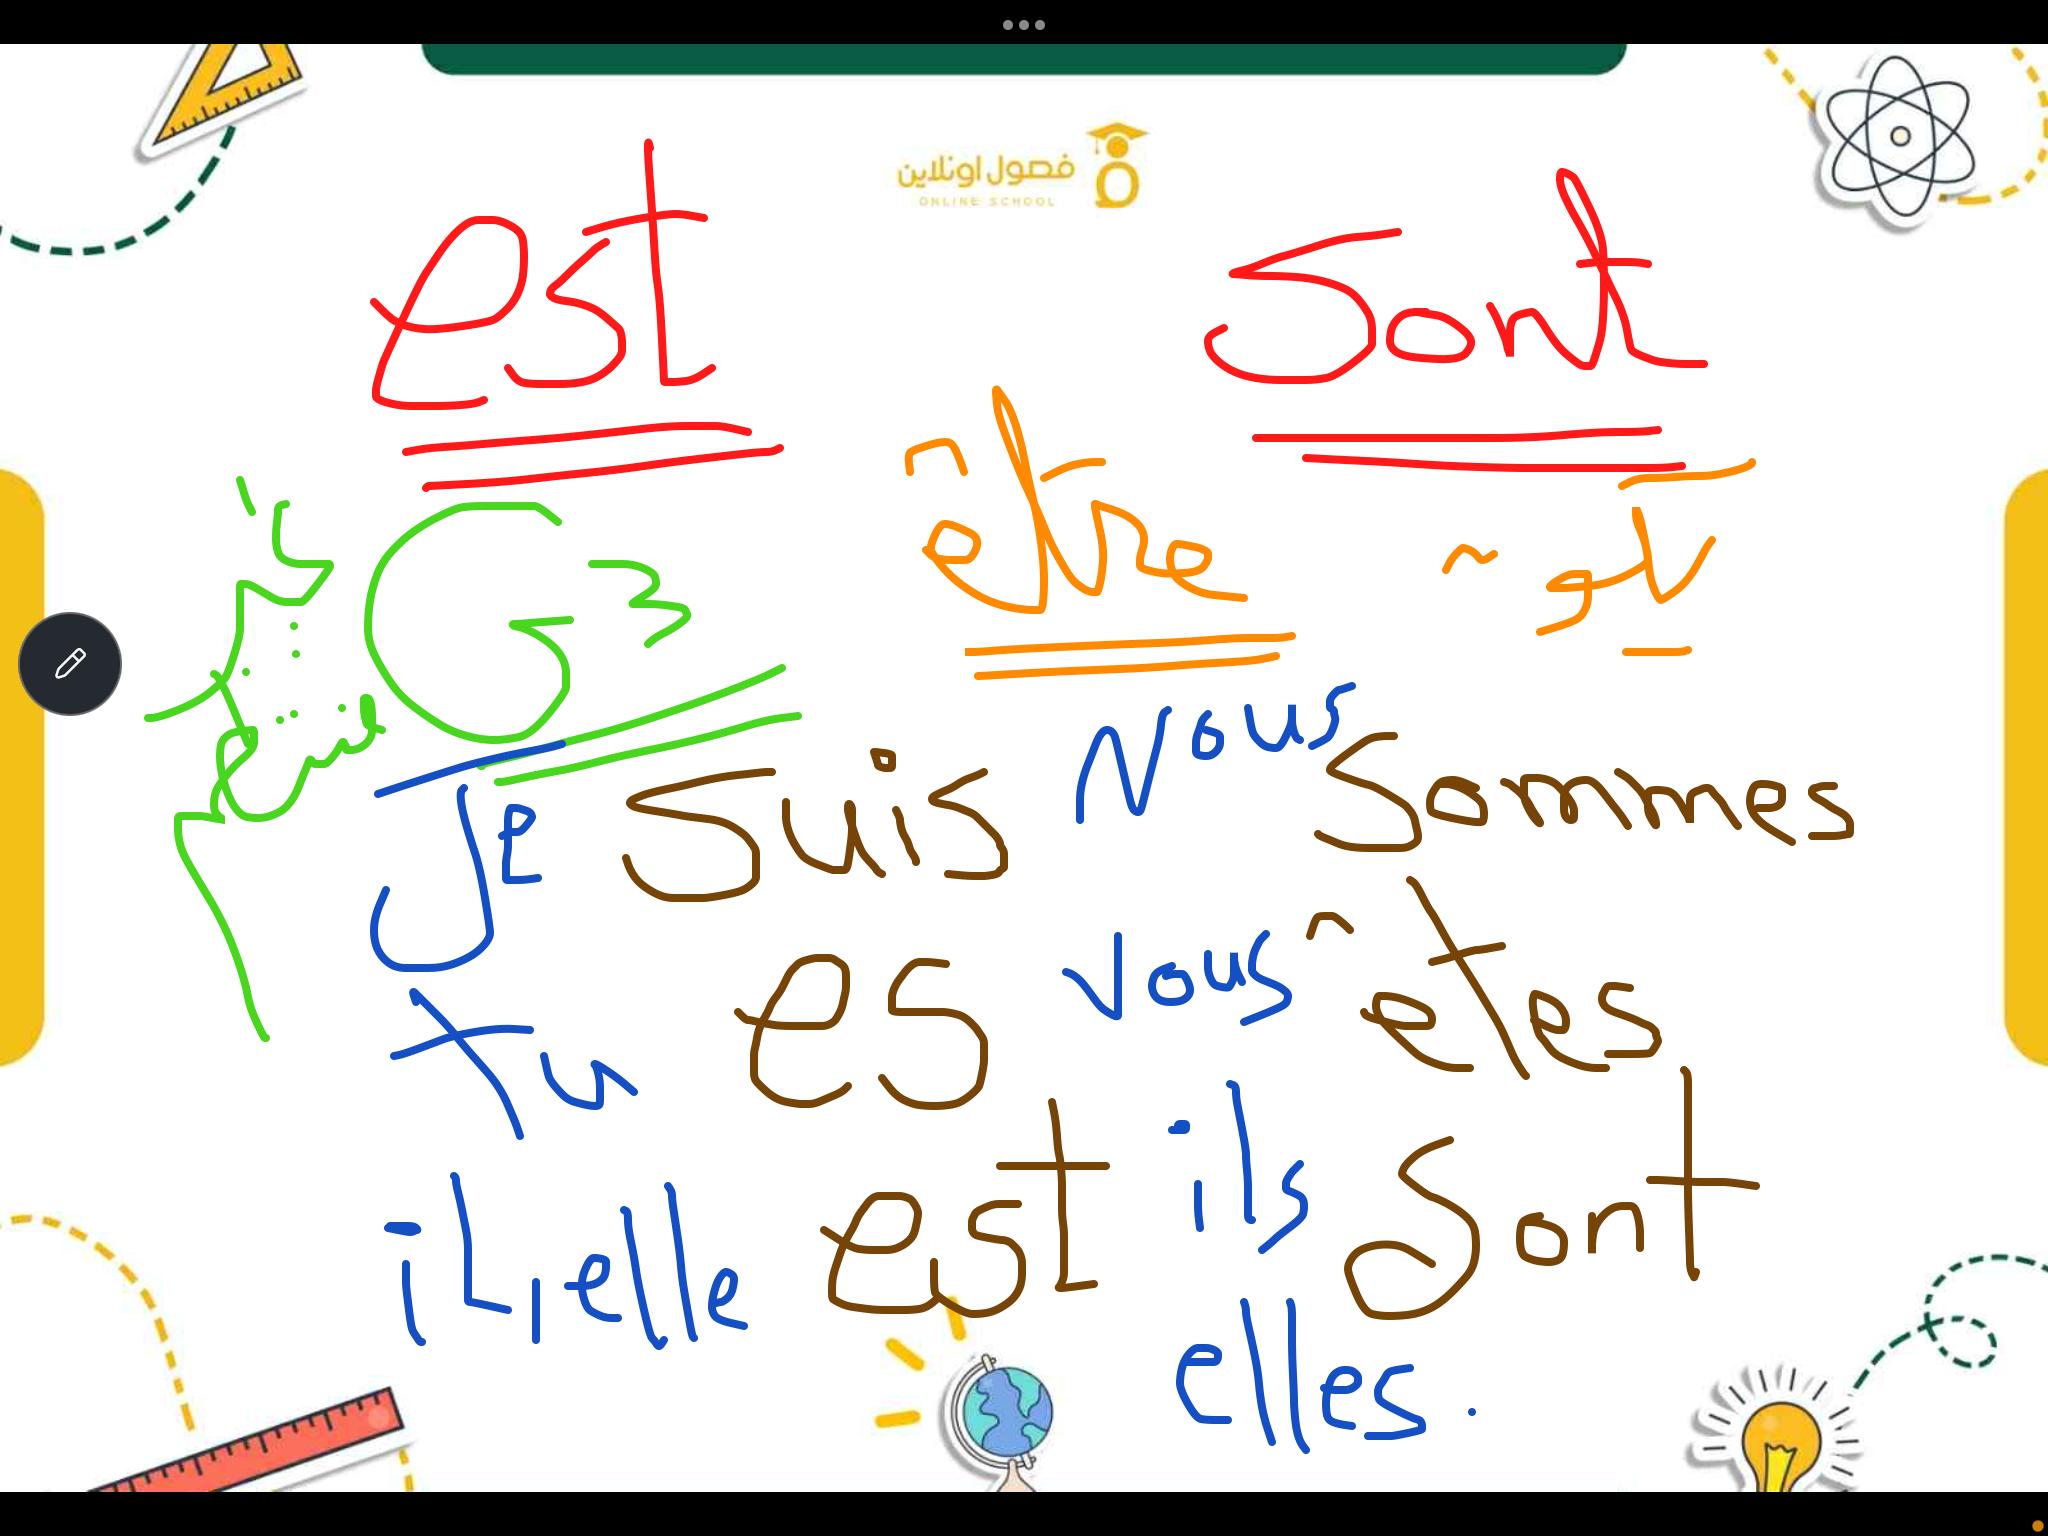 فصول اونلاين
ONLINE SCHOOL
est sont
être
G3
Je suis Nous sommes
tu es vous êtes
il, elle est ils sont
elles.